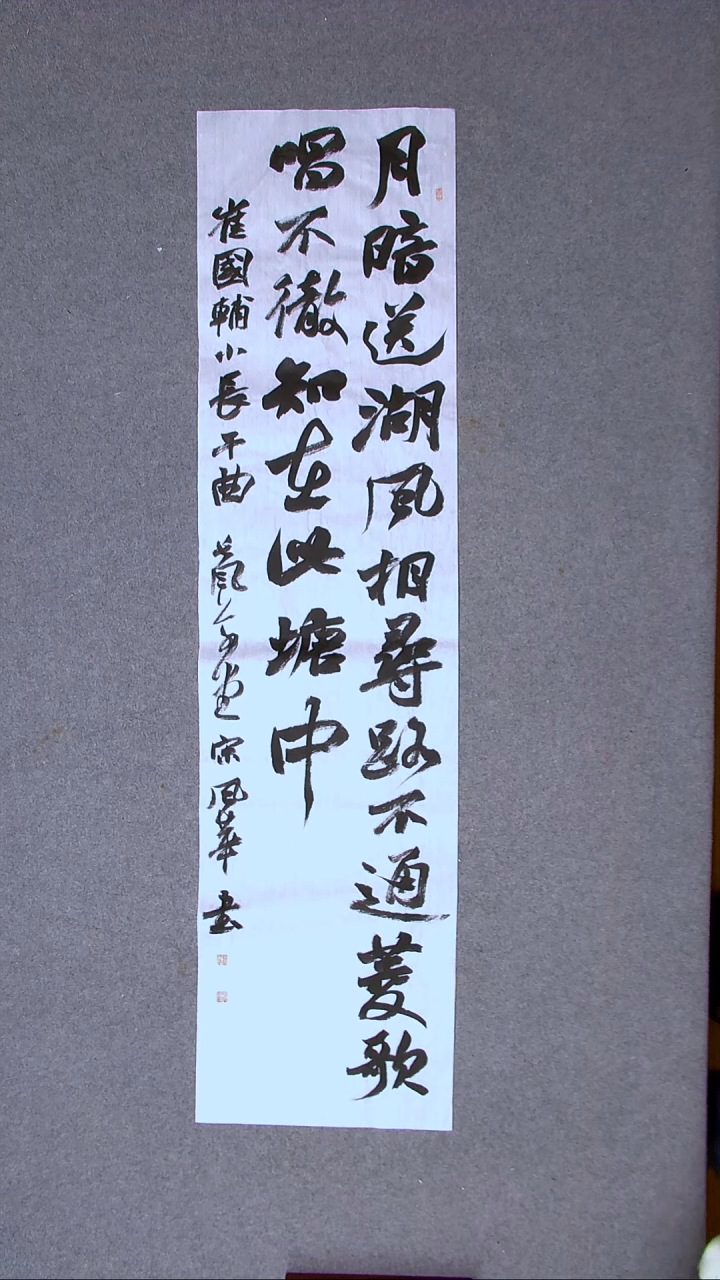 月暗送湖風相尋路不通菱歌
唱不徹知在此塘中
崔國輔小長干曲 宋風華书